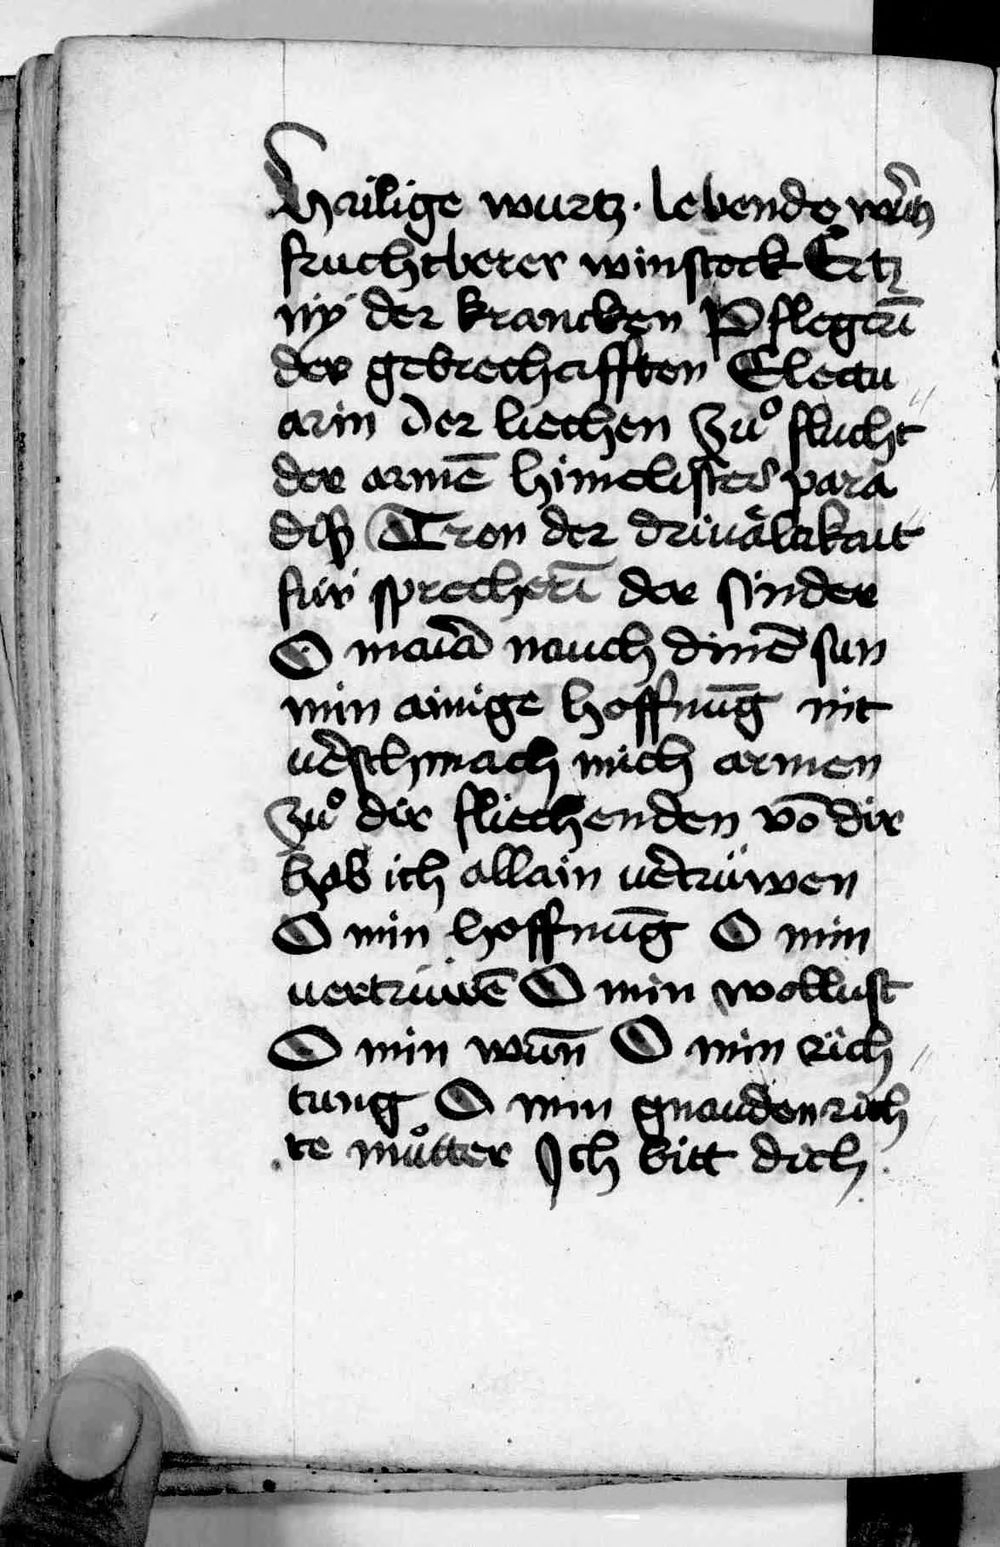 Hailige wurtz · lebende
fruchtberer winstock Ertz
nÿ der krancken Pflegerī
der gebrechafften Electu
arin der siechen Zuͦ flucht
der armē himelischs para
diß Tron der driuͤaltikait
für sprecherī der sünder
O maria nauch dinē sun
min ainige hoffnūg nit
v̄schmach mich armen
Zuͦ dir fliechenden vō dir
hab ich allain v̄trüwen
O min hoffnūg O min
uertrüwē O min wollust
O min wūn O min rich
tung O min gnaudenrich
te muͦtter Ich bitt dich